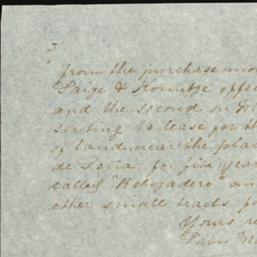 3
from the purchase mon
Paige & Kornitze offe
and the second in
senting to lease for th
of land near the plac
de Doña for five year
called "Rebozadero" an
other small tracts
Yours re
Pablo M